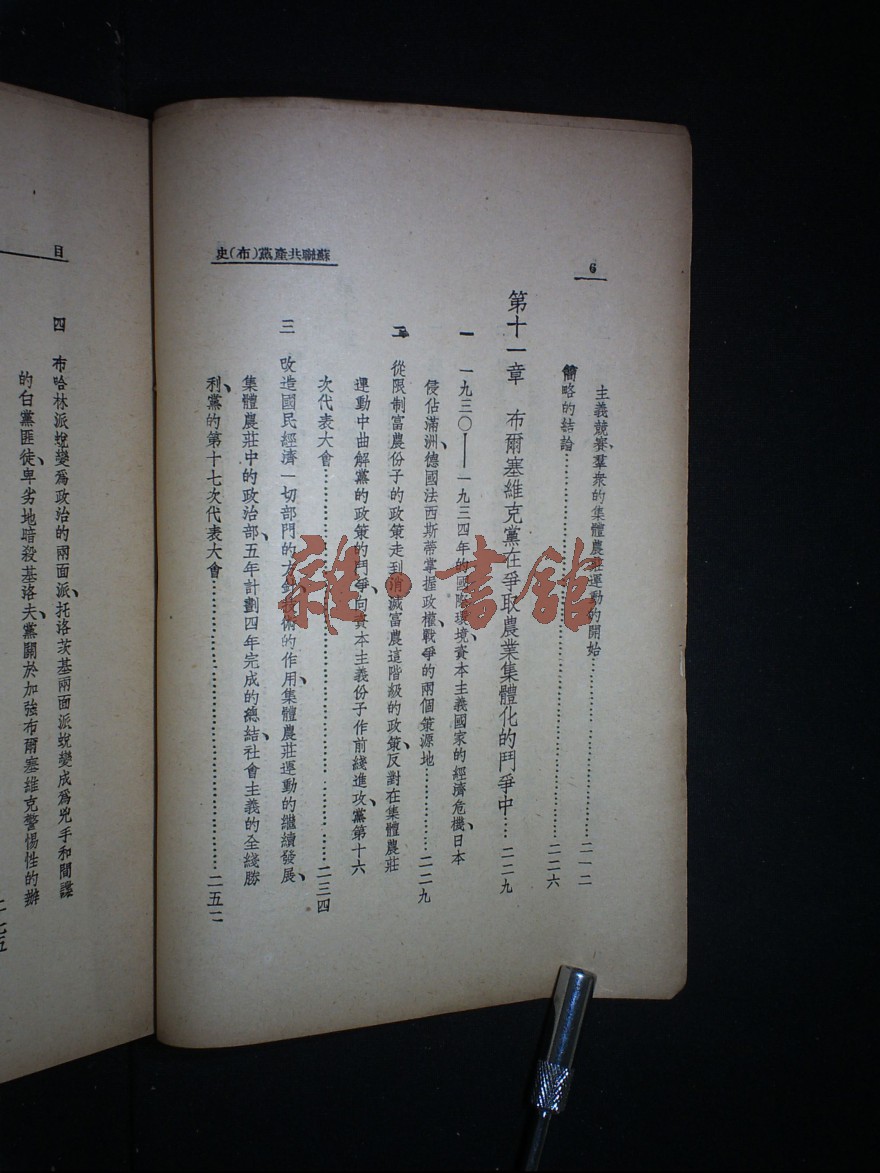 6
蘇聯共產黨(布)史
主義競賽、羣衆的集體農莊運動的開始……………………二一二
簡略的結論……………………二二六
第十一章 布爾塞維克黨在爭取農業集體化的鬥爭中……二二九
一 一九三〇——一九三四年的國際環境、資本主義國家的經濟危機、日本
侵佔滿洲、德國法西斯蒂掌握政權、戰爭的兩個策源地……………………二二九
二 從限制富農份子的政策走到消滅富農這階級的政策、反對在集體農莊
運動中曲解黨的政策的鬥爭、向資本主義份子作前綫進攻、黨第十六
次代表大會……………………二三四
三 改造國民經濟一切部門的方針、技術的作用、集體農莊運動的繼續發展、
集體農莊中的政治部、五年計劃四年完成的總結、社會主義的全綫勝
利、黨的第十七次代表大會……………………二五二
目
四 布哈林派蛻變爲政治的兩面派、托洛茨基兩面派蛻變成爲兇手和間諜
的白黨匪徒、卑劣地暗殺基洛夫、黨關於加強布爾塞維克警惕性的辦
雜·書館